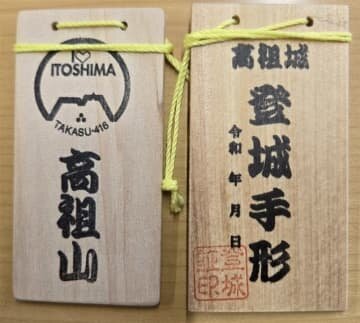 I ♡
ITOSHIMA
TAKASU-416
高祖山
高祖城
登城手形
令和 年 月 日
登城
証印